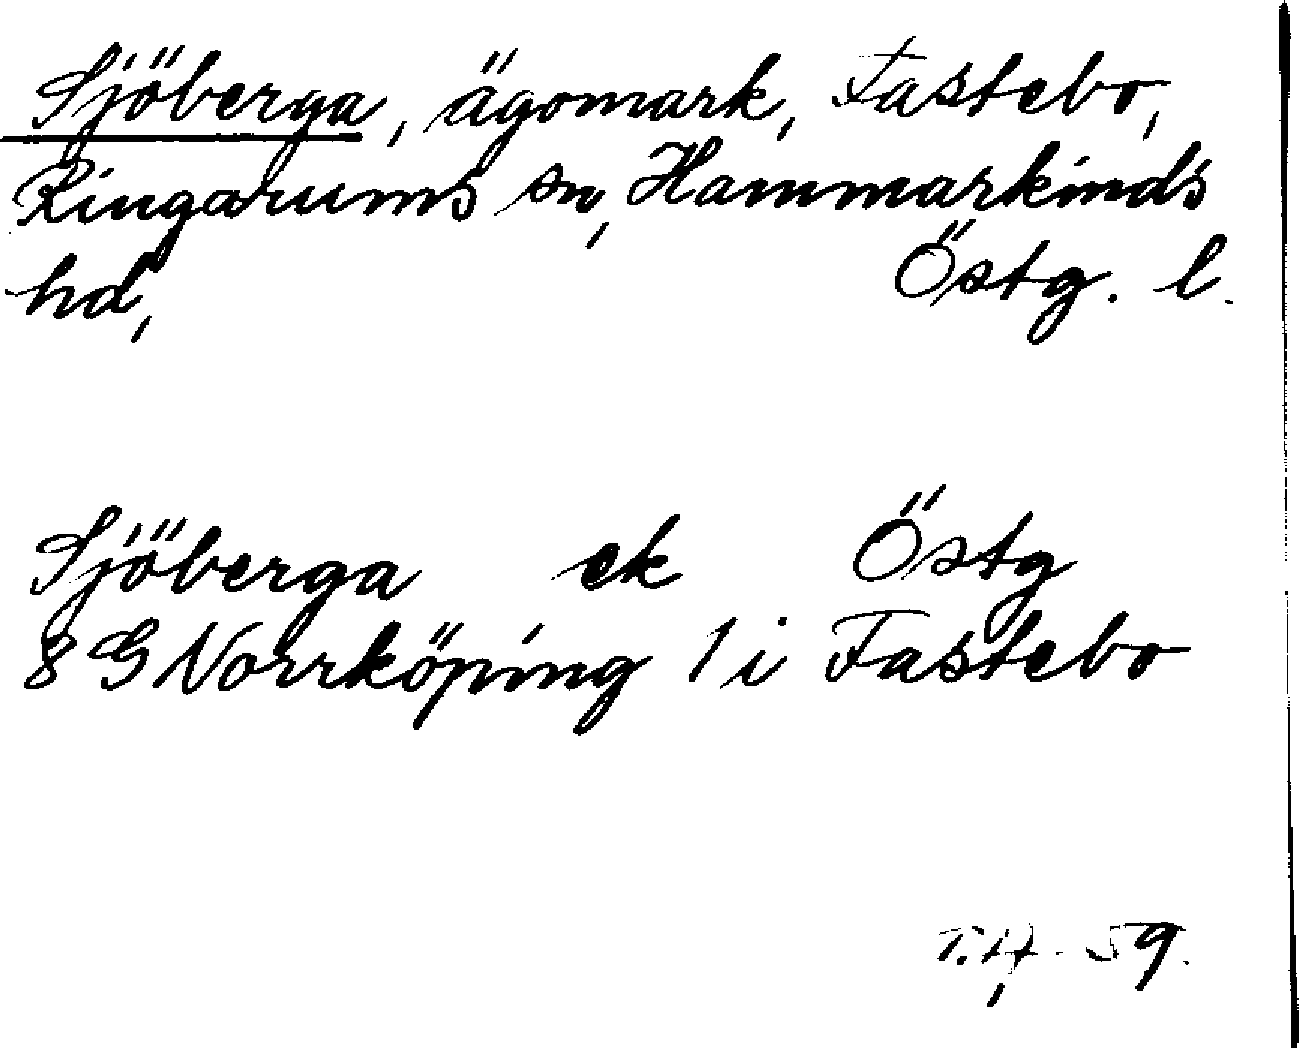 Sjöberga, ägomark, Fastebo,
Ringarums sn, Hammarkinds
hd, Östg. l.
Sjöberga ek Östg
8 G Norrköping 1 i Fastebo
T.H. 59.